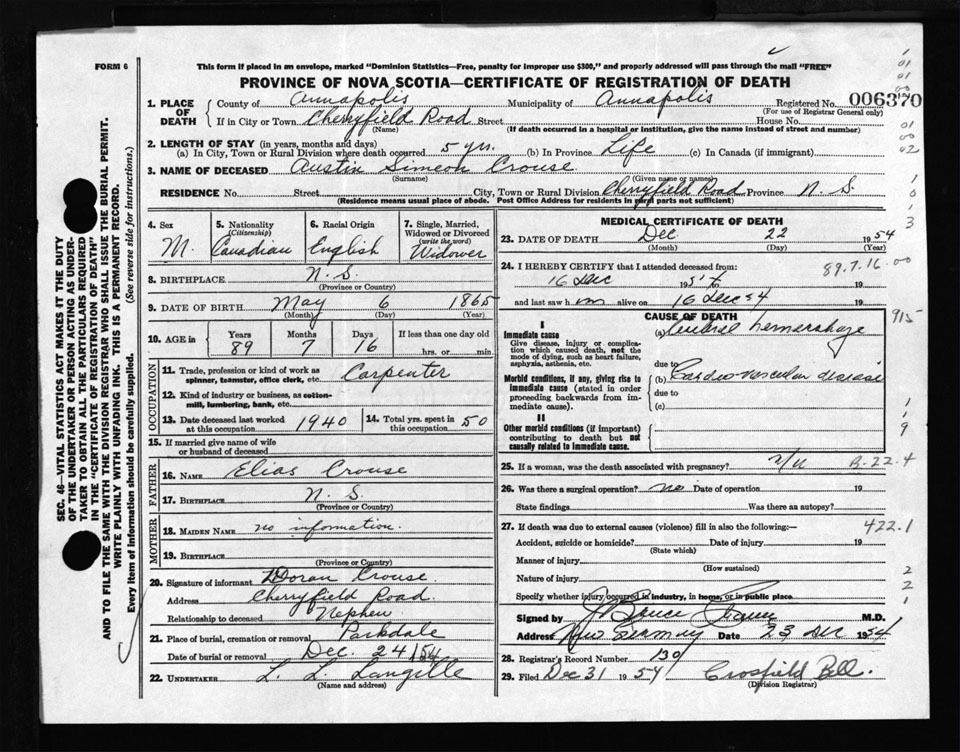 FORM 6
This form if placed in an envelope, marked "Dominion Statistics—Free, penalty for improper use $300," and properly addressed will pass through the mail "FREE"
PROVINCE OF NOVA SCOTIA—CERTIFICATE OF REGISTRATION OF DEATH
1. PLACE OF DEATH
County of Annapolis Municipality of Annapolis Registered No. 006370
(For use of Registrar General only)
If in City or Town Cherryfield Road Street House No.
(Name) (If death occurred in a hospital or institution, give the name instead of street and number)
2. LENGTH OF STAY (in years, months and days)
(a) In City, Town or Rural Division where death occurred 5 yrs. (b) In Province Life (c) In Canada (if immigrant)
3. NAME OF DECEASED Austin Simeon Crouse
(Surname) (Given name or names)
RESIDENCE No. Street City, Town or Rural Division Cherryfield Road Province N. S.
(Residence means usual place of abode. Post Office Address for residents in rural parts not sufficient)
4. Sex
M.
5. Nationality
(Citizenship)
Canadian
6. Racial Origin
English
7. Single, Married, Widowed or Divorced
(write the word)
Widower
8. BIRTHPLACE N. S.
(Province or Country)
9. DATE OF BIRTH May 6 1865
(Month) (Day) (Year)
10. AGE in
Years Months Days If less than one day old
89 7 16 hrs. or min.
OCCUPATION
11. Trade, profession or kind of work as spinner, teamster, office clerk, etc. Carpenter
12. Kind of industry or business, as cotton-mill, lumbering, bank, etc.
13. Date deceased last worked at this occupation 1940
14. Total yrs. spent in this occupation 50
15. If married give name of wife or husband of deceased
FATHER
16. NAME Elias Crouse
17. BIRTHPLACE N. S.
(Province or Country)
MOTHER
18. MAIDEN NAME no information.
19. BIRTHPLACE
(Province or Country)
20. Signature of informant Doran Crouse.
Address Cherryfield Road.
Relationship to deceased Nephew
21. Place of burial, cremation or removal Parkdale
Date of burial or removal Dec. 24/54
22. UNDERTAKER L. L. Langille
(Name and address)
MEDICAL CERTIFICATE OF DEATH
23. DATE OF DEATH Dec 22 1954
(Month) (Day) (Year)
24. I HEREBY CERTIFY that I attended deceased from:
89.7.16.00
16 Dec 19 19
and last saw h im alive on 16 Dec 54 19
CAUSE OF DEATH
915
I
Immediate cause
Give disease, injury or complication which caused death, not the mode of dying, such as heart failure, asphyxia, asthenia, etc.
(a) Cerebral hemorrahage
due to
Morbid conditions, if any, giving rise to immediate cause (stated in order proceeding backwards from immediate cause).
(b) Cardio vascular disease
due to
(c)
II
Other morbid conditions (if important) contributing to death but not causally related to immediate cause.
25. If a woman, was the death associated with pregnancy? B-22.4
26. Was there a surgical operation? no Date of operation 19
State findings Was there an autopsy?
27. If death due to external causes (violence) fill in also the following:—
422.1
Accident, suicide or homicide? Date of injury 19
(State which)
Manner of injury
(How sustained)
Nature of injury
Specify whether injury occurred in industry, in home, or in public place
Signed by M.D.
Address New Germany Date 23 Dec 1954
28. Registrar's Record Number 130
29. Filed Dec 31 1954 Crosfield Bell.
(Division Registrar)
SEC. 46—VITAL STATISTICS ACT MAKES IT THE DUTY
OF THE UNDERTAKER OR PERSON ACTING AS UNDERTAKER TO OBTAIN ALL THE PARTICULARS REQUIRED
IN THE "CERTIFICATE OF REGISTRATION OF DEATH"
AND TO FILE THE SAME WITH THE DIVISION REGISTRAR WHO SHALL ISSUE THE BURIAL PERMIT.
WRITE PLAINLY WITH UNFADING INK. THIS IS A PERMANENT RECORD.
Every item of information should be carefully supplied. (See reverse side for instructions.)